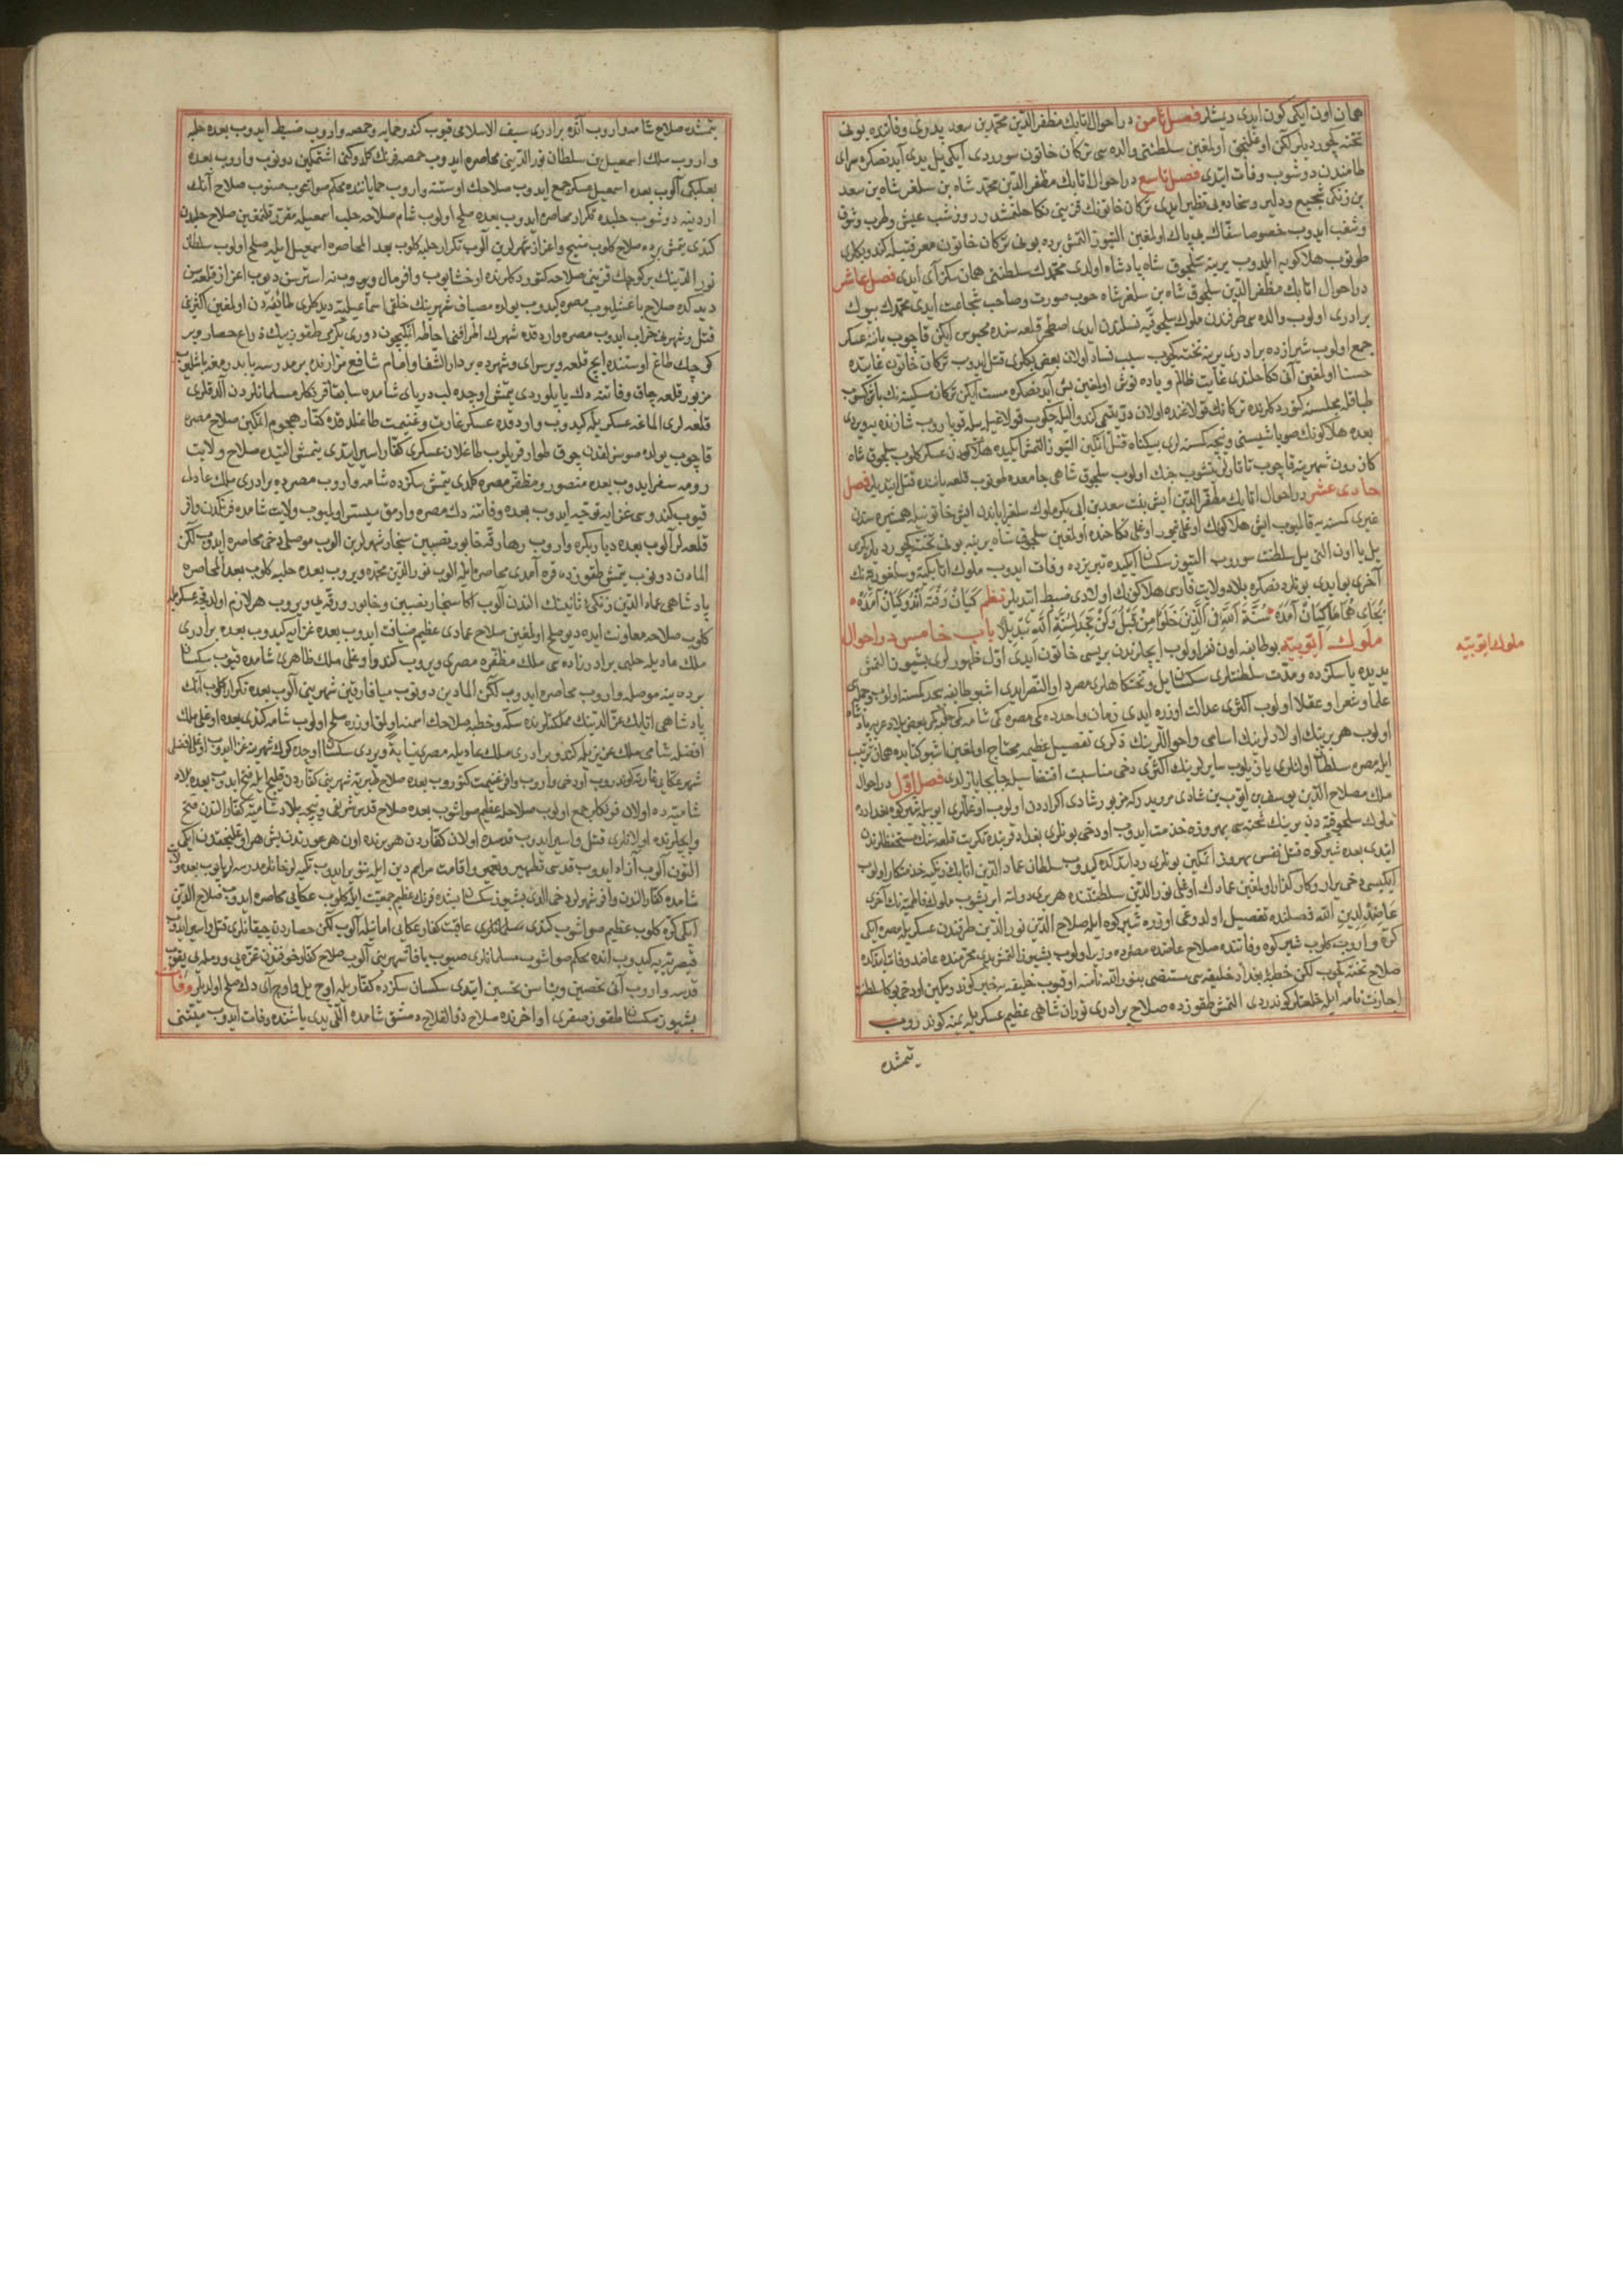 همان اون ایکی کون ایدی دیمشلر فصل ثامن در احوال اتابك مظفر الدین محمد بن سعد پدری وفاتنده بونی
تخته کچوردیلر لکن اوغلنجق اولمغین سلطنتی والده سی ترکان خاتون سوردی ایکی ییل یدی آیدنصکره سرای
طامندن دوشوب وفات ایتدی فصل تاسع در احوال اتابك مظفر الدین محمد شاه بن سلغر شاه بن سعد
بن زنکی شجیع ودلیر وسخاده بی نظیر ایدی ترکان خاتونك قزینی نکاحلنمشدر روز وشب عیش وطرب وشوق
وشغب ایدوب خصوصا سفاك بی باك اولمغین التیوز التمش برده بونی ترکان خاتون معرفتیله کندو بکلری
طوتوب هلاکویه ایلدوب یرینه سلجوق شاه پادشاه اولدی محمدك سلطنتی همان سکز آی ایدی فصل عاشر
در احوال اتابك مظفر الدین سلجوق شاه بن سلغر شاه خوب صورت وصاحب شجاعت ایدی محمدك بیوك
برادری اولوب والده سی طرفندن ملوك سلجوقیه نسلندن ایدی اصطخر قلعه سنده محبوس ایکن قاچوب یاننه عسکر
جمع اولوب شیرازده برادری یرینه تخته کچوب سبب فساد اولان بعض بکلری قتل ایدوب ترکان خاتون غایتده
حسنا اولغین آنی نکاحلندی غایت ظالم وباده نوش اولمغین بش آیدنصکره مست ایکن ترکان مسکینه نك باشن کسوب
طباقله مجلسنه کتوردکلرنده ترکانك قولاغنده اولان
بعده هلاکونك صوباشیسنی ونیجه کمسنه لری بیکناه قتل اتکین التیوز التمش ایکیده هلاکودن عسکر کلوب سلجوق شاه
کازرون شهرینه قاچوب تاتار یتشوب جنك اولوب سلجوق شاهی جامعده طوتوب قلعه یاننده قتل ایتدیلر فصل
حادی عشر در احوال اتابك مظفر الدین ایش بنت سعد بن ابی بکر ملوك سلغریاندن ایش خاتونیله همشیره سندن
غیری کمسنه قالمیوب ایش هلاکونك اوغلی تیمور اوغلی نکاحنده اولمغین سلجوق شاه یرینه بونی تخته کچوردیلر یکرمی
ییل یا اون التی ییل سلطنت سوروب التیوز سکسان ایکیده تبریزده وفات ایدوب ملوك اتابکیه وسلغوریه نك
آخری بو ایدی بونلردنصکره بلاد ولایت فارسی هلاکونك اولادی ضبط ایتدیلر نظم کیان رفته اند وکیان آمده
بجای هما ماکیان آمده سنة الله في الذین خلوا من قبل ولن تجد لسنة الله تبدیلا باب خامس در احوال
ملوك ایوبیه بو طایفه اون نفر اولوب ایچلرندن بریسی خاتون ایدی اول ظهورلری بشیوز التمش
یدیده یا سکزده ومدت سلطنتلری سکسان ییل وتختکاهلری مصرده اولنصر ایدی اشبو طایفه
علما وشعرا وعقلا اولوب اکثری عدالت اوزره ایدی زمان واحدده کمی مصرده کمی شامده کمی حلبده کمی بعض بلاد عربه پادشاه
اولوب هر برینك اولادلرینك اسامی واحواللرینك ذکری تفصیل عظیمه محتاج اولمغین اشبو کتابده همان ترتیب
ایله مصره سلطان اولنلری یازیلوب سایرلرینك اکثری دخی مناسبت اقتضاسیله جابجا یازلدی فصل اول در احوال
ملك صلاح الدین یوسف بن ایوب بن شادی مروید رکه مزبور شادی اکراددن اولوب اوغللری ایوبیله شیرکوه بغدادده
ملوك سلجوقیه دن برینك شحنه سی بهروزه خدمت ایدوب اودخی بونلری بغداد قربنده تکریت قلعه سنك مستحفظلرندن
ایتدی بعده شیرکوه قتل نفس اتکین بهروز بونلری رد ایتدکده کیدوب سلطان عماد الدین اتابك زنکیه خدمتکار اولوب
ایکیسی دخی یرار وکارکذار اولمغین عمادك اوغلی نور الدین سلطنتنده هر بری دولته ایریشوب ملوك فاطمیه نك آخری
عاضد لدین الله فصلنده تفصیل اولدوغی اوزره شیرکوه ایله صلاح الدین نور الدین طرفندن عسکریله مصره ایکی
کره واروب کلوب شیرکوه وفاتنده صلاح عاضده مصرده وزیر اولوب بشیوز التمش یدی محرمنده عاضد وفات ایتدکده
صلاح تخته کچوب لکن خطبه ی بغداد خلیفه سی مستضی بنور الله نامنه اوقیوب خلیفه یه خبر کوندرمکین اودخی بوکا سلطنت
اجازت نامه ایله خلعتلر کوندردی التمش طقوزده صلاح برادری توران شاهی عظیم عسکریله یمنه کوندروب
یتمشده
ملوك ایوبیه
یتمشده صلاح شامه واروب آنده برادری سیف الاسلامی قیوب کندو حمایه وحمصه واروب ضبط ایدوب بعده حلبه
واروب ملك اسمعیل بن سلطان نور الدینی محاصره ایدوب حمصه فرنك کلدوکنی اشتمکین دونوب واروب بعده
بعلبکی آلوب بعده اسمعیل عسکر جمع ایدوب صلاحك اوستنه واروب حمایاننده محکم صواشوب صنوب صلاح آنك
اردینه دوشوب حلبده تکرار محاصره ایدوب بعده صلح اولوب شام صلاحه حلب اسمعیله مقرر قلنمغین صلاح حلبدن
کندی یتمش برده صلاح کلوب منبج واعزاز شهرلرین آلوب تکرار حلبه کلوب بعد المحاصره اسمعیل ایله صلح اولوب سلطان
نور الدینك بر کوچك قزینی صلاحه کتوردکلرنده اوخشایوب وافر مال ویروب نه استرسن دیوب اعزاز قلعه سن
دیدکده صلاح باغشلیوب مصره کیدوب یولده مصیاف شهرینك خلقی اسماعیلیه دیدکلری طائفه دن اولمغین اکثرینی
قتل وشهرینی خراب ایدوب مصره واردقده شهرك اطرافنی احاطه اتکیچون دوری یکرمی طقوز بیك ذراع حصار وبر
کوچك طاغ اوستنده ایچ قلعه وبر سرای وشهرده بر دار الشفا وامام شافع مزارنده بر مدرسه یا بدرمغه باشلیوب
مزبور قلعه چاق وفاتنه دك یاپیلوردی یتمش اوچده لب دریای شامده سابقا فرنکلر مسلمانلردن آلدقلری
قلعه لری الماغه عسکریله کیدوب واردقده عسکر غارت وغنیمت طاغلدقده کفار هجوم اتکین صلاح مصره
قاچوب یولده صوسزلقدن چوق طوار قریلوب طاغلان عسکری کفار اسیر ایتدی یتمش التیده صلاح ولایت
رومه سفر ایدوب بعده منصور ومظفر مصره کلدی یتمش سکزده شامه واروب مصرده برادری ملك عادل
قیوب کندوسی غزایه توجه ایدوب بعده وفاتنه دك مصره وارمق میسر اولمیوب ولایت شامده فرنکدن وافر
قلعه لر آلوب بعده دیار بکره واروب رها ورقه خابور نصیبین سنجار شهرلرین الوب موصلی دخی محاصره ایدوب لکن
المادن دونوب یتمش طقوزده قره آمدی محاصره ایله الوب نور الدین محمده ویروب بعده حلبه کلوب بعد المحاصره
پادشاهی عماد الدین زنکیء ثانینك الندن آلوب اکا سنجار نصیبین وخابور ورقه یی ویروب هر لازم اولدقجه عسکریله
کلوب صلاحه معاونت ایده دیو صلح اولمغین صلاح عمادی عظیم ضیافت ایدوب بعده غزایه کیدوب بعده برادری
ملك عادیله حلبی برادرزاده سی ملك مظفره مصری ویروب کندو اوغلی ملك ظاهری شامده قیوب سکسان
برده ینه موصله واروب محاصره ایدوب لکن المادین دونوب میافارقین شهرینی آلوب بعده تکرار کلوب آنك
پادشاهی اتابك عز الدینك مملکتلرنده سکه وخطبه صلاحك اسمنه اولمق اوزره صلح اولوب شامه کندی بعده اوغلی ملك
افضله شامی ملك عزیزیله کندو برادری ملك عادیله مصری نیابة ویردی سکسان اوچده کرك شهرینه غزا ایدوب اوغلی افضلی
شهر عکایه غارته کوندروب اودخی واروب وافر غنیمت کتوروب بعده صلاح طبریه شهرینی کفاردن قلیچ ایله فتح ایدوب بعده بلاد
شامیه ده اولان فرنکلر جمع اولوب صلاحله عظیم صواشوب بعده صلاح قدس شریفی ونیجه بلاد شامیه یی کفار الندن فتح
وایچلرنده اولانلری قتل واسیر ایدوب قدسده اولان کفاردن هر برنده اون هر عورتدن بش هر اوغلنجقدن ایکی
التون آلوب آزاد ایدوب قدسی تطهیر وتعمیر واقامت مراسم دین ایله تنویر ایدوب تکیه لر خانلر مدرسه لر یاپوب بعده ولایت
شامده کفار الندن وافر شهرلر دخی الدی بشیوز سکسان بشده فرنك عظیم جمعیت ایله کلوب عکایی محاصره ایدوب صلاح الدین
ایکی کره کلوب عظیم صواشوب کندی مسلمانلری عاقبت کفار عکایی امانیله آلوب لکن حصاردن چیقانلری قتل واسیر ایدوب
قیصریه یه کیدوب آنده محکم صواشوب مسلمانلری صیوب یافا شهرینی آلوب صلاح کفار خوفندن غزه یی ورمله یی یقوب
قدسه واروب آنی تحصین وبناسن تحسین ایتدی سکسان سکزده کفاریله اوچ ییل واوچ آی دك صلح اولدیلر وفات
بشیوز سکسان طقوز صفری اواخرنده صلاح ذو الفلاح دمشق شامده اللی یدی یاشنده وفات ایدوب میتنی